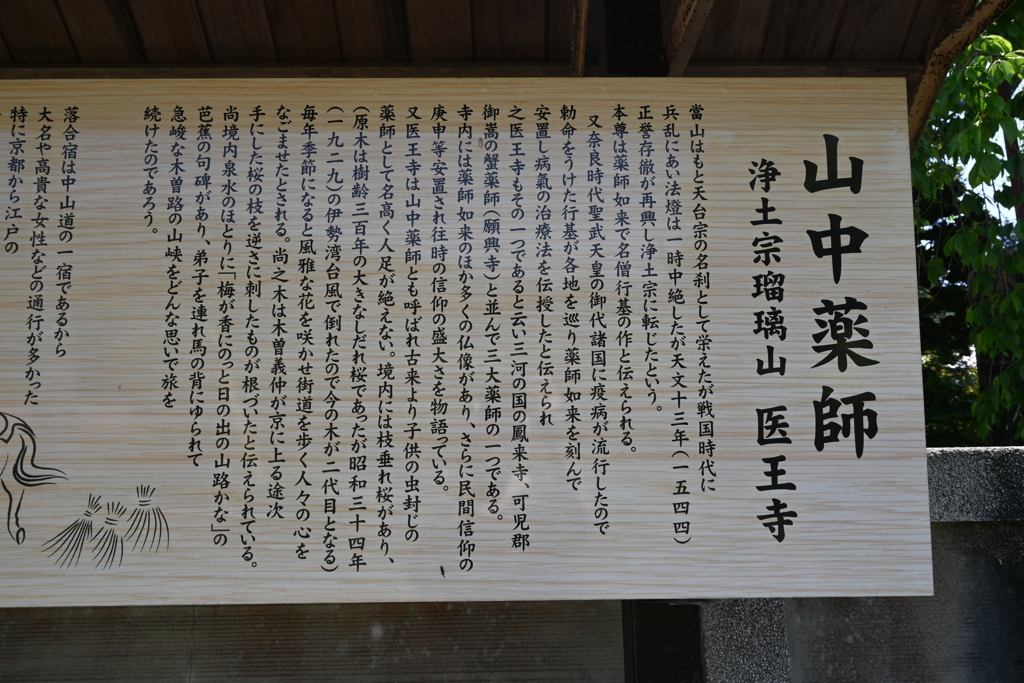 山中薬師
浄土宗瑠璃山 医王寺
當山はもと天台宗の名刹として栄えたが戦国時代に
兵乱にあい法燈は一時中絶したが天文十三年(一五四四)
正誉存徹が再興し浄土宗に転じたという。
本尊は薬師如来で名僧行基の作と伝えられる。
又奈良時代聖武天皇の御代諸国に疫病が流行したので
勅命をうけた行基が各地を巡り薬師如来を刻んで
安置し病氣の治療法を伝授したと伝えられ
之医王寺もその一つであると云い三河の国の鳳来寺、可児郡
御嵩の蟹薬師(願興寺)と並んで三大薬師の一つである。
寺内には薬師如来のほか多くの仏像があり、さらに民間信仰の
庚申等安置され往時の信仰の盛大さを物語っている。
又医王寺は山中薬師とも呼ばれ古来より子供の虫封じの
薬師として名高く人足が絶えない。境内には枝垂れ桜があり、
(原木は樹齢三百年の大きなしだれ桜であったが昭和三十四年
(一九二九)の伊勢湾台風で倒れたので今の木が二代目となる)
毎年季節になると風雅な花を咲かせ街道を歩く人々の心を
なごませたとされる。尚之木は木曽義仲が京に上る途次
手にした桜の枝を逆さに刺したものが根づいたと伝えられている。
尚境内泉水のほとりに「梅が香にのっと日の出の山路かな」の
芭蕉の句碑があり、弟子を連れ馬の背にゆられて
急峻な木曽路の山峡をどんな思いで旅を
続けたのであろう。
落合宿は中山道の一宿であるから
大名や高貴な女性などの通行が多かった
特に京都から江戸の